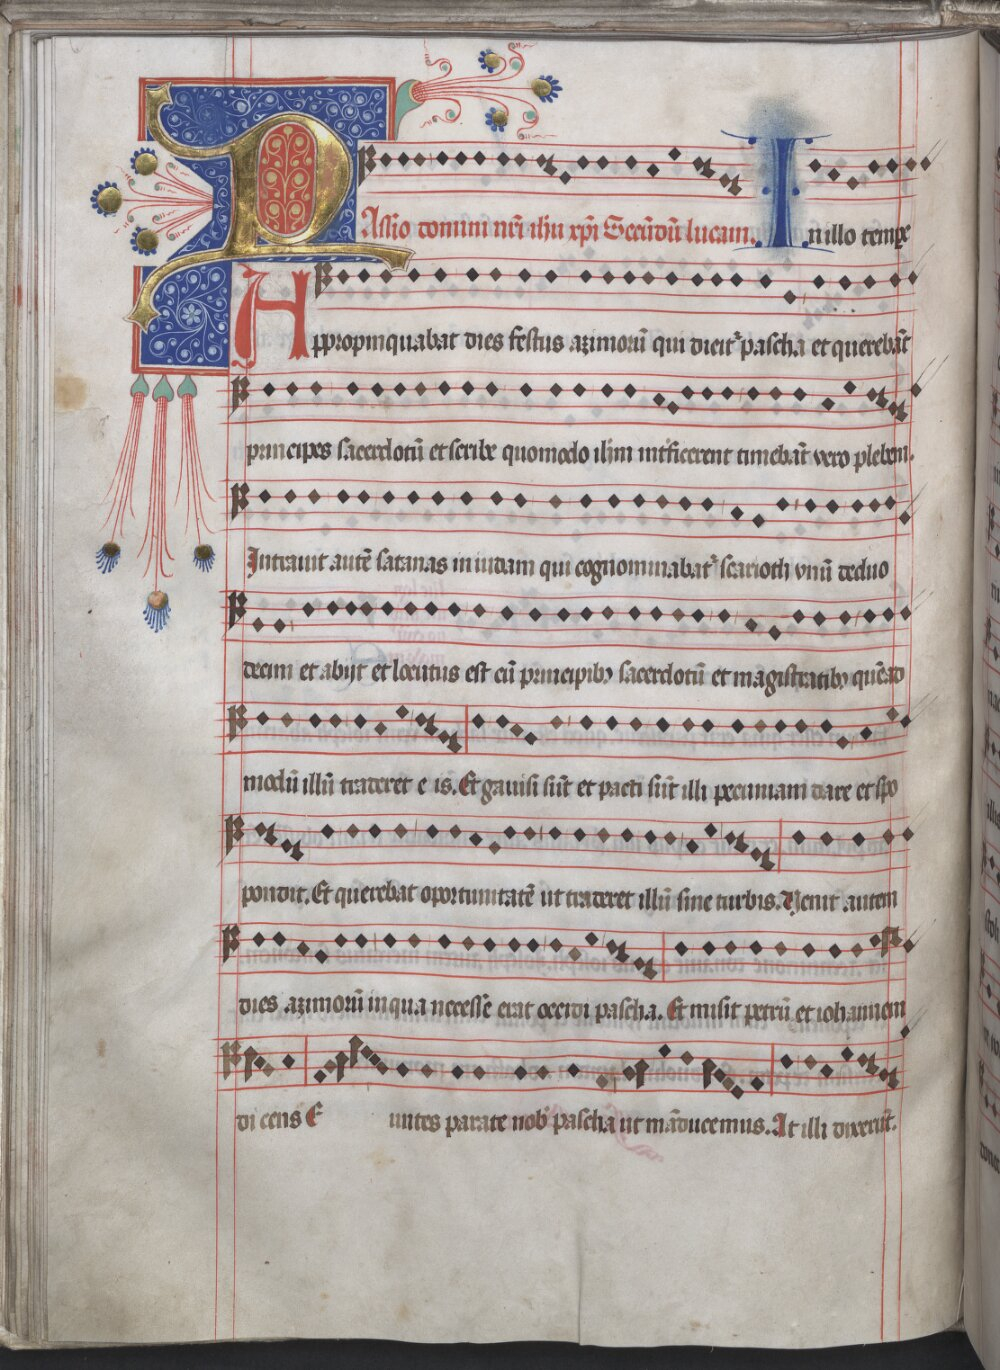 PAssio domini nr̄i ih̄u xp̄i Secūdū lucam. In illo tempe
Appropinquabat dies festus azimorū qui diciť pascha et querebāt
principes sacerdotū et scribe quomodo ih̄m int̄ficerent timebāt vero plebem.
Intrauit autē satanas in iudam qui cognominabať scarioth vnū de duo
decim et abijt et locutus est cū principibꝫ sacerdotū et magistratibꝫ quēad
modū illū traderet eis. Et gauisi sūt et pacti sūt illi pecuniam dare et spo
pondit. Et querebat oportunitatē ut traderet illū sine turbis. Uenit autem
dies azimorū in qua necesse erat occidi pascha. Et misit petrū et iohannem
dicens Euntes parate nob̛ pascha ut māducemus. At illi dixerūt.